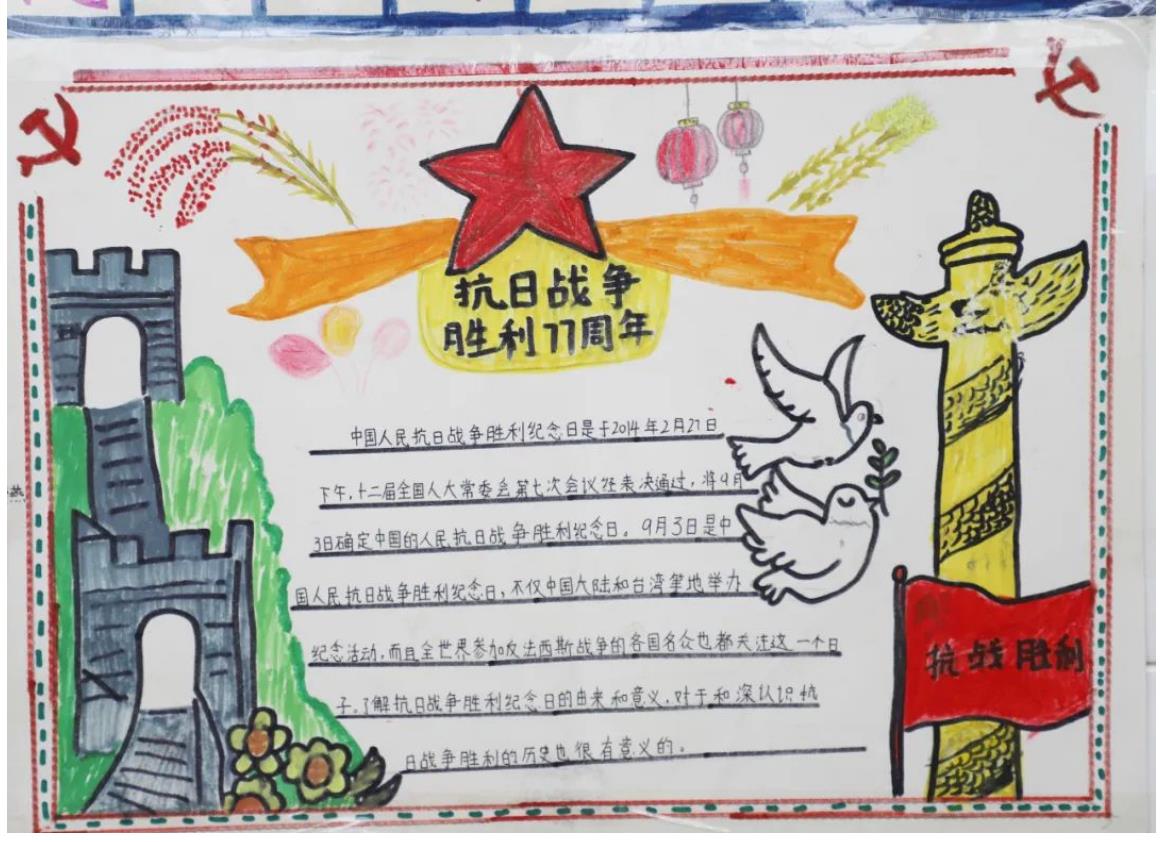 抗日战争
胜利77周年
中国人民抗日战争胜利纪念日是于2014年2月27日
下午，十二届全国人大常委会第七次会议经表决通过，将9月
3日确定中国的人民抗日战争胜利纪念日。9月3日是中
国人民抗日战争胜利纪念日，不仅中国大陆和台湾等地举办
纪念活动，而且全世界参加反法西斯战争的各国名众也都关注这一个日
子。了解抗日战争胜利纪念日的由来和意义，对于和深认识抗
日战争胜利的历史也很有意义的。
抗战胜利